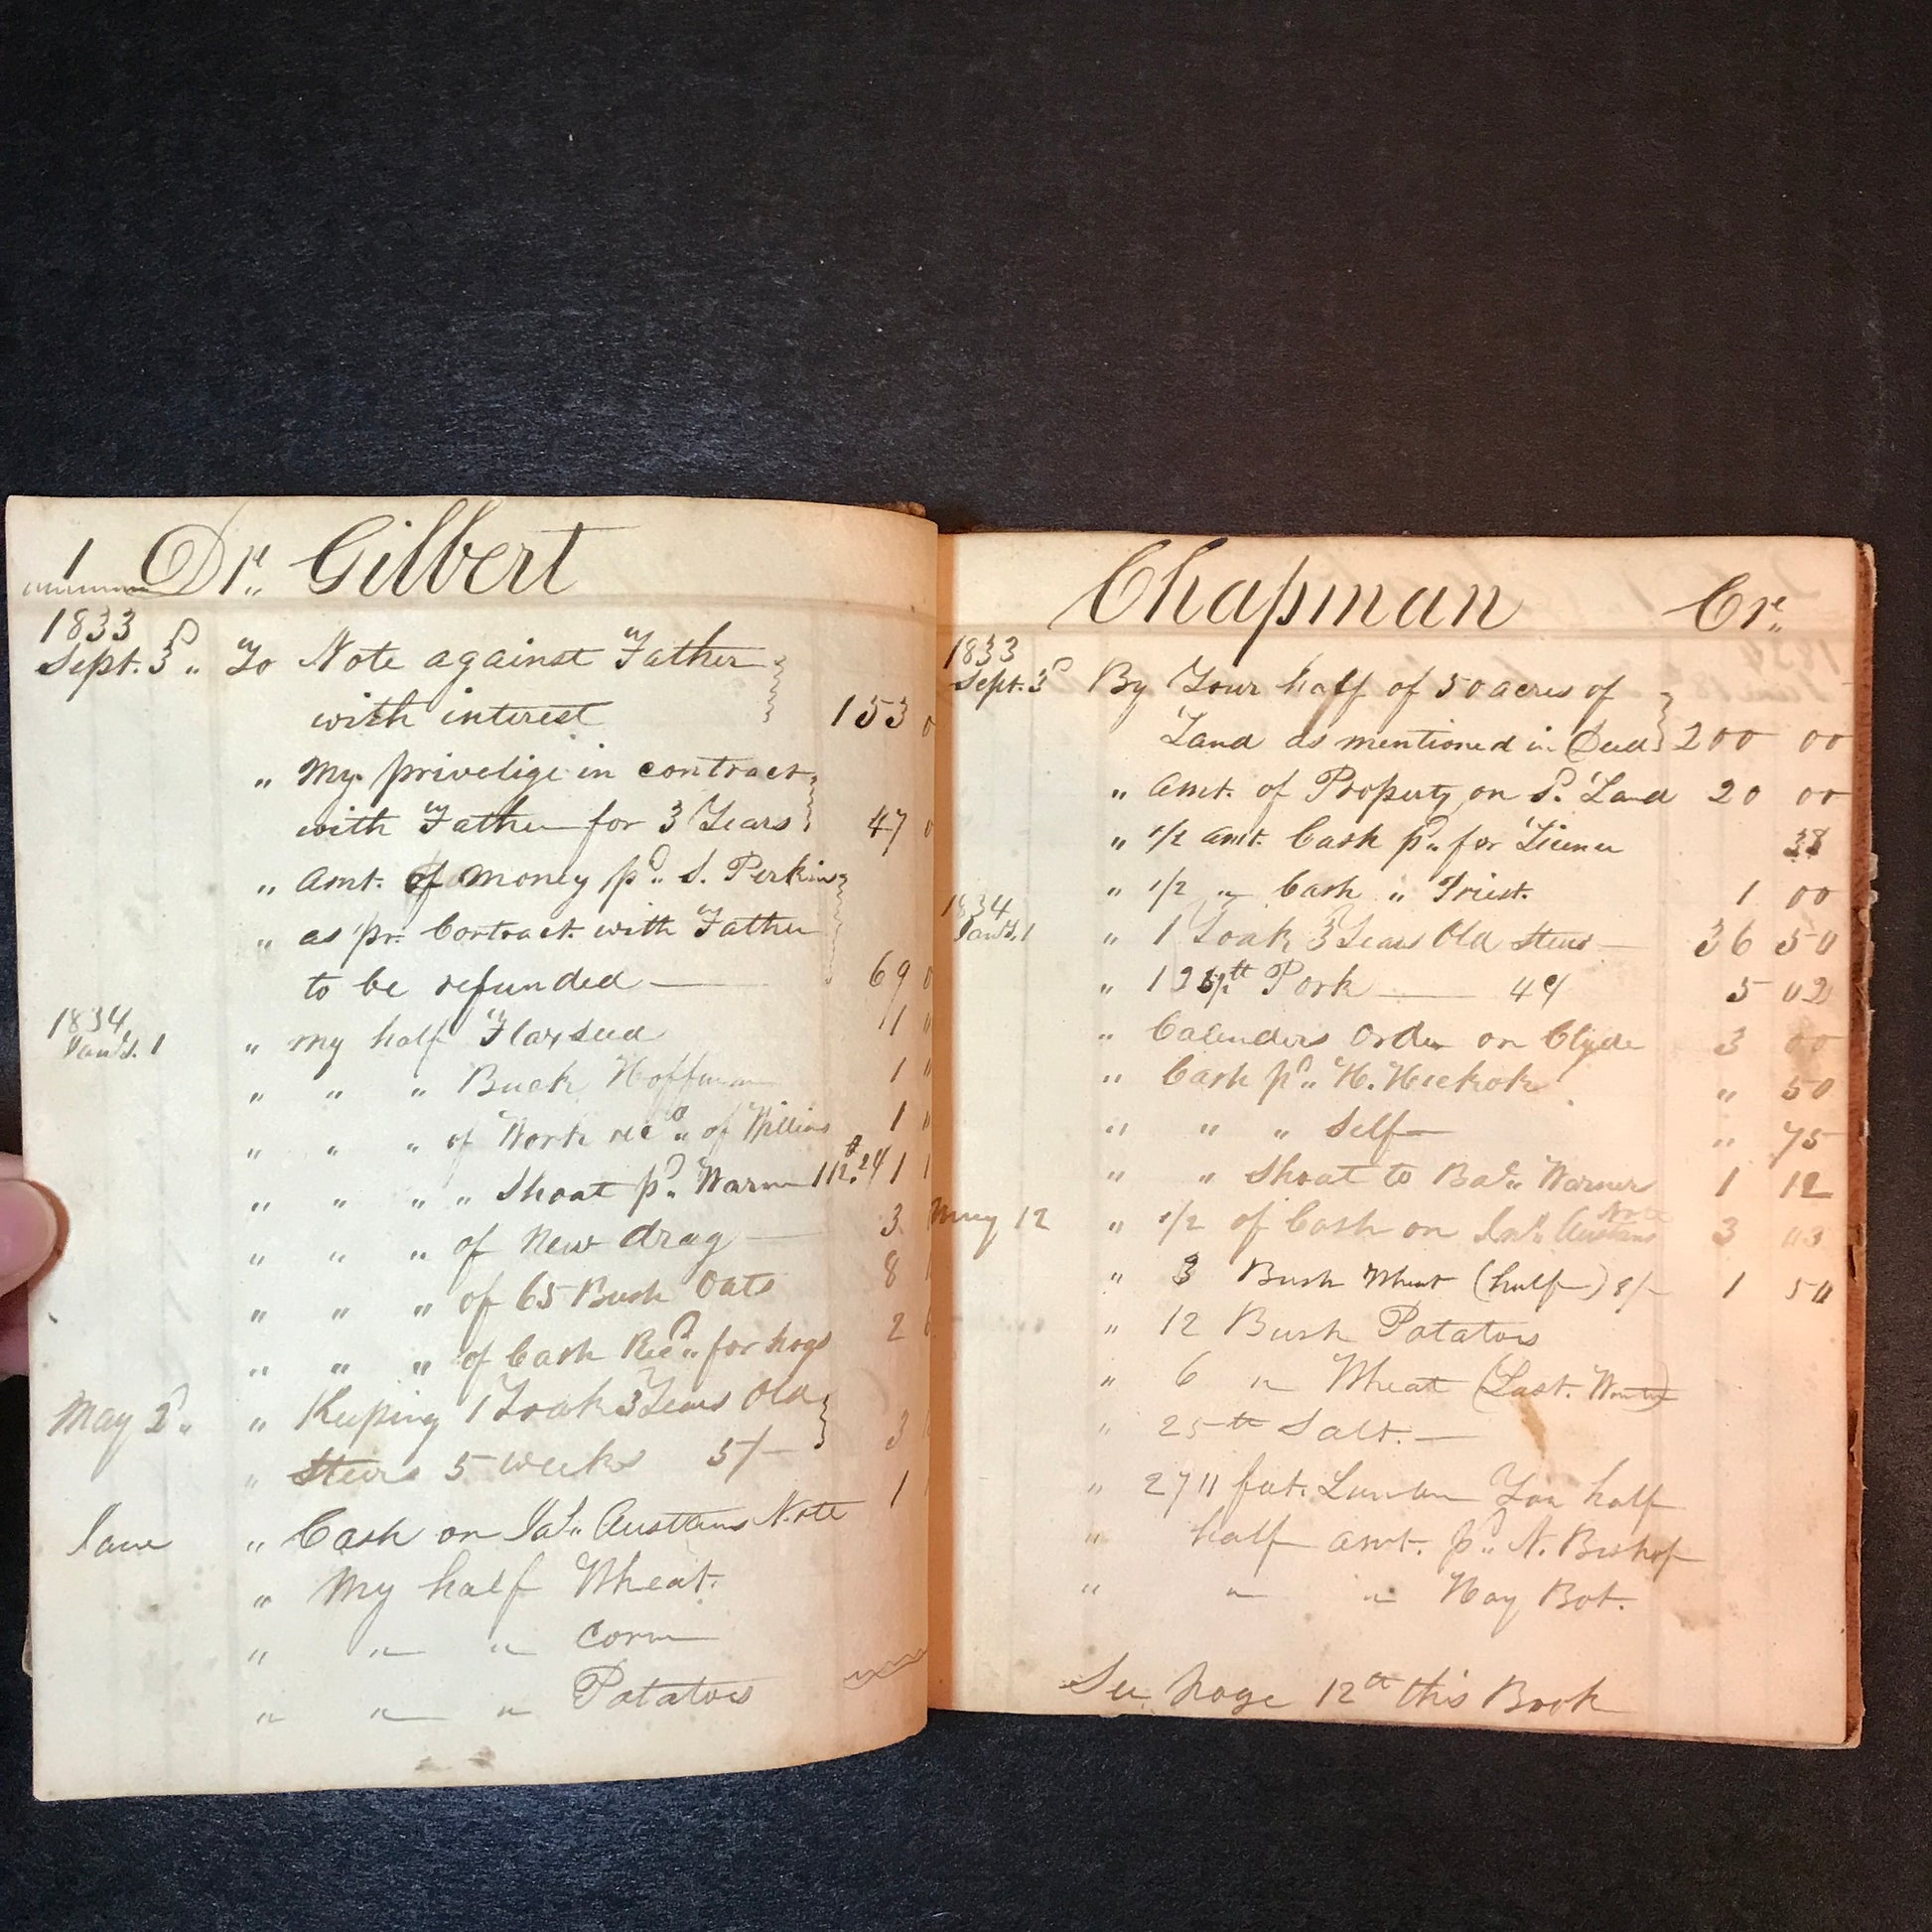 1 Dr. Gilbert
1833
Sept. 3d " To Note against Father
with interest 153 0
" My privelige in contract
with Father for 3 Years 47 0
" Amt. of money pd. S. Perkins
" as pr. Contract with Father
to be refunded 69 0
1834
Jany. 1 " my half Flaxseed 1 "
" " " Buck Hoffman 1 "
" " " of Work recd. of Willims 1 "
" " " " Shoat pd. Warner 112. 1 1
" " " of New drag 3
" " " of 65 Bush Oats 8
" " " of Cash Recd. for hogs 2
May 2d. " Keeping 1 Yoak 3 Years Old
" Steers 5 weeks 5/- 3
June " Cash on Austtins Note 1
" My half Wheat.
" " " Corn
" " " Potatoes
Chapman Cr.
1833
Sept. 3d By Your half of 50 acres of
Land as mentioned in Deed 200 00
" Amt. of Property on sd. Land 20 00
" 1/2 Amt. Cash pd. for 38
" 1/2 " Cash " Priest. 1 00
1834
Jany. 1 " 1 Yoak 3 Years Old Steers 36 50
" Pork 4 5 02
" Calenders Order on Clyde 3 00
" Cash pd. H. Heckok " 50
" " " Self " 75
" " Shoat to Warner 1 12
May 12 " 1/2 of Cash on Austtins Note 3 03
" 3 Bush Wheat (half) 8/- 1 50
" 12 Bush Potatoes
" 6 " Wheat (Last. Winter)
" 25 lb Salt.
" 2711 feet. Lumber You half
" half amt. pd. N. Bishop
" " " Hay Bot.
See page 12th this Book